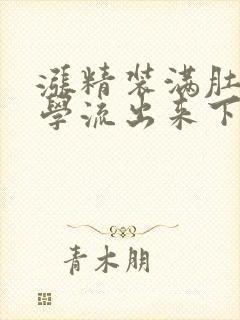 漲精装满肚
學流出来下
青木朋